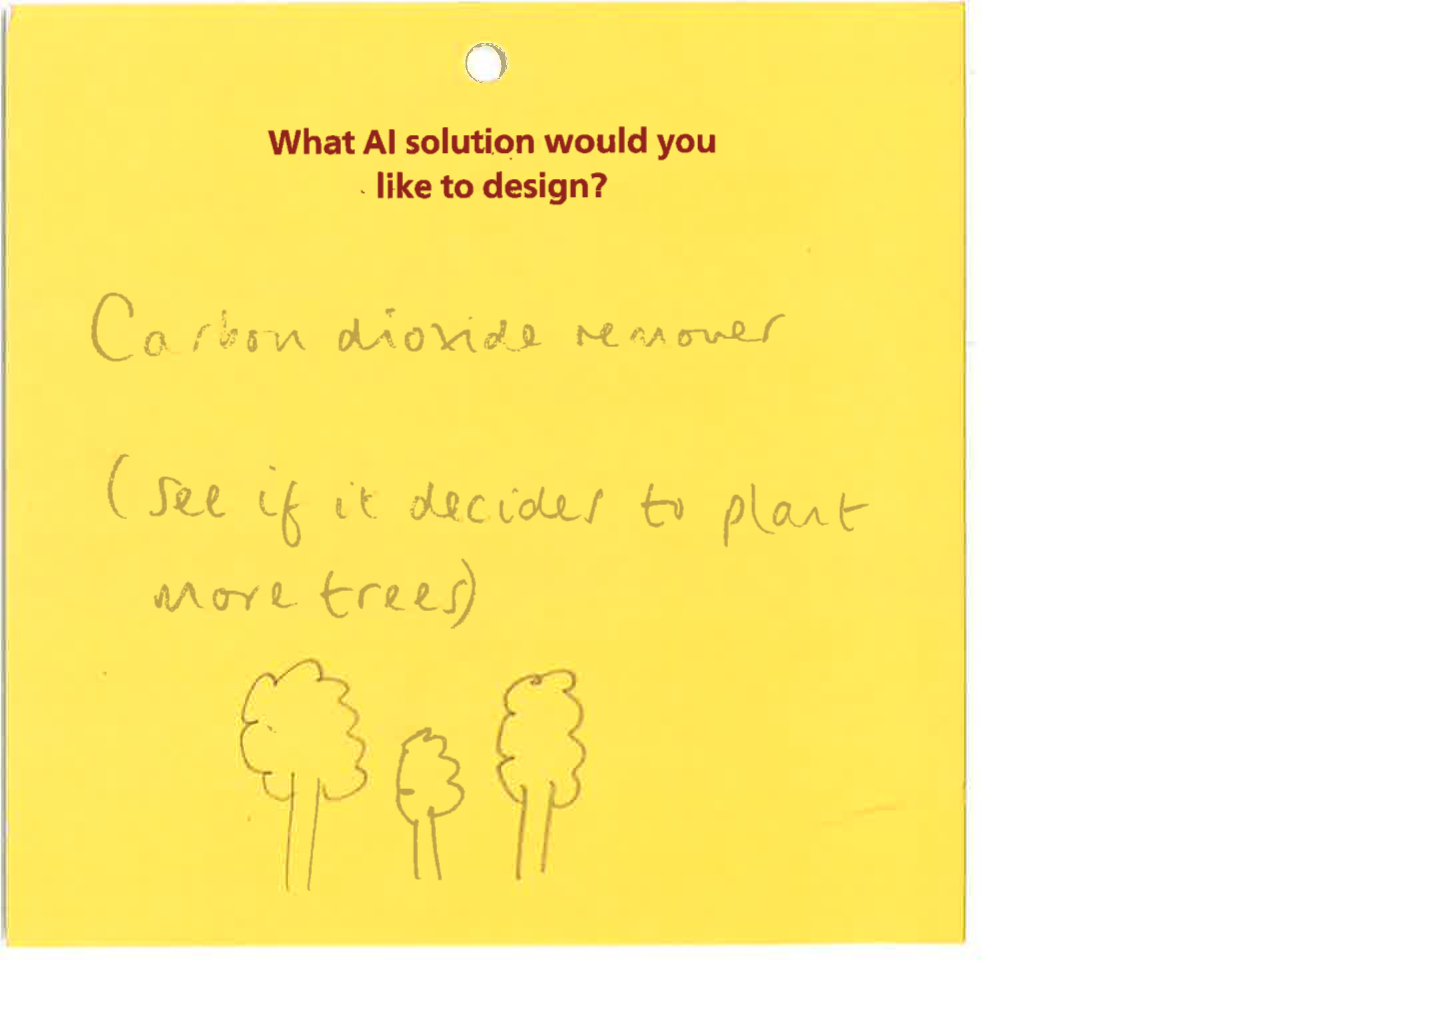 What AI solution would you
like to design?
Carbon dioxide remover
(see if it decides to plant
more trees)